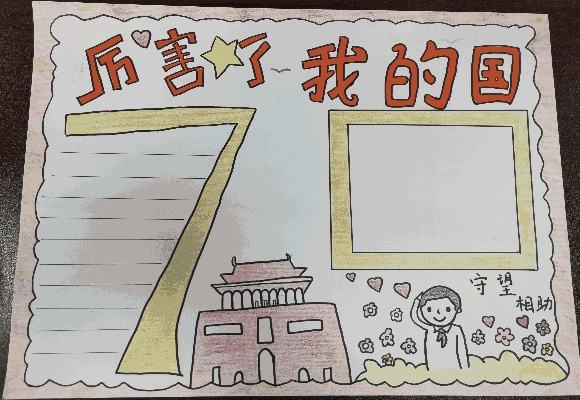 厉害了 我的国
70
守望
相助